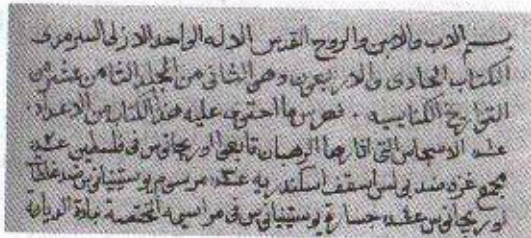 بسم الاب والابن والروح القدس الاله الواحد الازلي السرمدى
الكتاب الحادى والاربعون وهو الثانى من المجلد الثامن عشر من
التواريخ الكنايسيه . فهرس ما احتوى عليه هذا الكتاب من الاعداد .
عدد الاسجاس التى اثارها الرهبان تابعى اوريجانوس فى فلسطين عدد
مجمع غزه ضد بولس اسقف اسكندريه عدد مرسوم يوستينيانوس ضد غلطات
اوريجانوس عدد جسارة يوستينيانوس فى مراسيمه المختصة بمادة الديانة